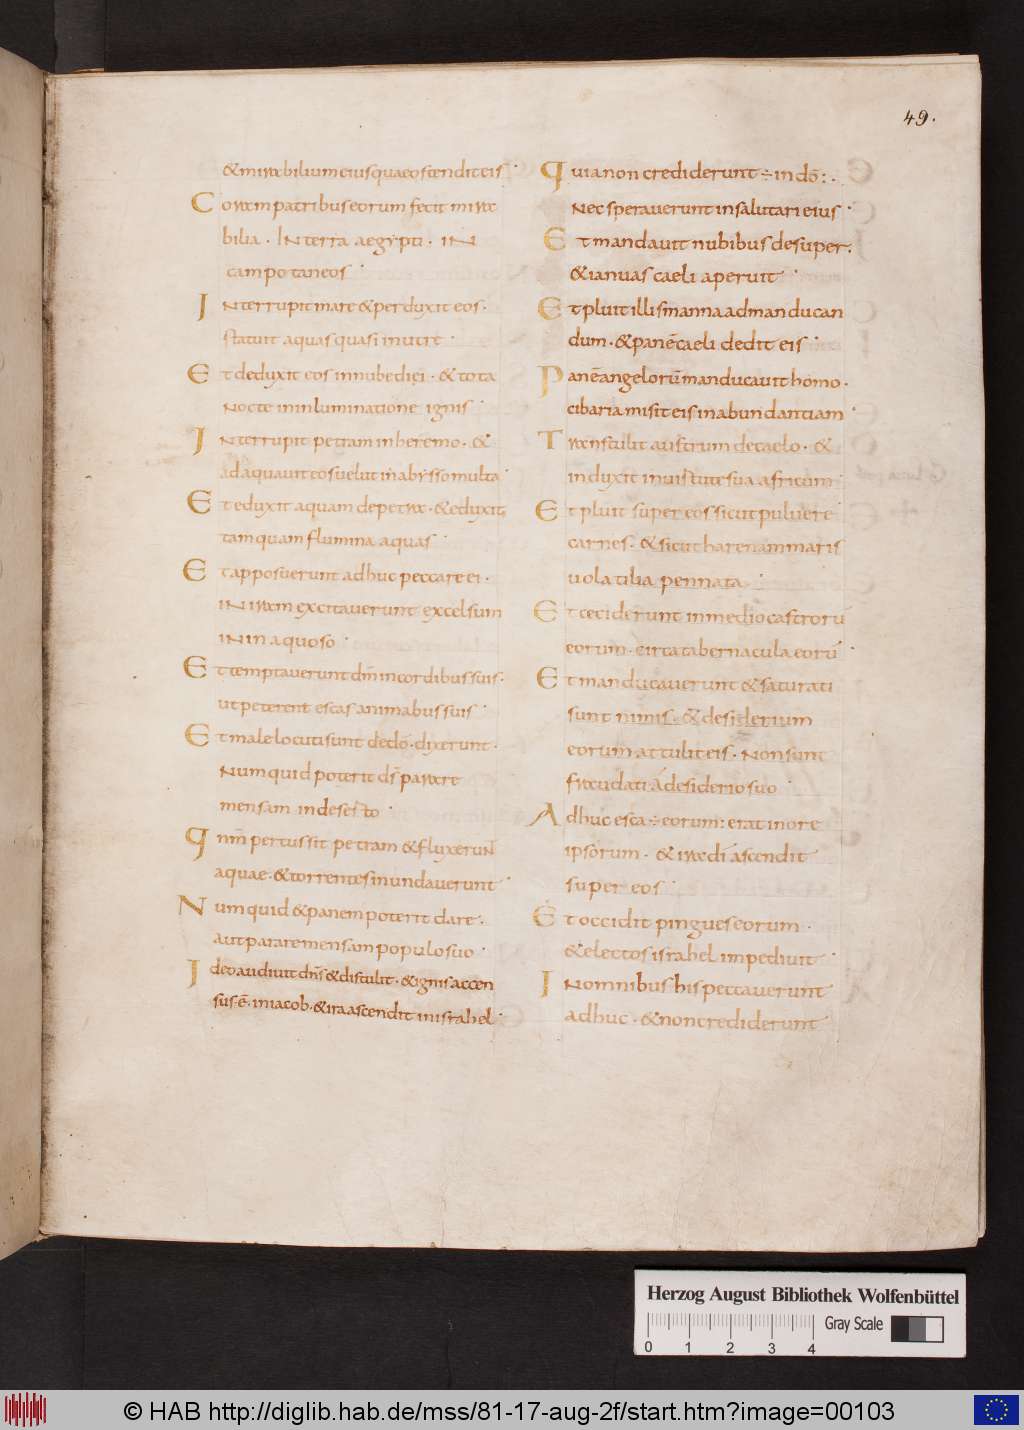 49.
& mirabilium eius quae ostendit eis
Coram patribus eorum fecit mira
bilia. In terra aegypti. in
campo taneos
Interrupit mare & perduxit eos.
statuit aquas quasi in utre
Et deduxit eos in nube diei. & tota
nocte in inluminatione ignis
Interrupit petram in heremo. &
adaquavit eos velut in abysso multa
Et eduxit aquam de petra. & eduxit
tamquam flumina aquas
Et apposuerunt adhuc peccare ei.
in iram excitaverunt excelsum
in inaquoso
Et temptaverunt dm̄ in cordibus suis.
ut peterent escas animabus suis
Et male locuti sunt de dō. dixerunt.
Numquid poterit ds̄ parare
mensam in deserto
Qnm̄ percussit petram & fluxerun
aquae. & torrentes inundaverunt
Numquid & panem poterit dare.
aut parare mensam populo suo
Ideo audivit dns̄ & distulit. & ignis accen
sus ē. in iacob. & ira ascendit in israhel
Quia non crediderunt ÷ in dō:.
Nec speraverunt in salutari eius
Et mandavit nubibus desuper.
& ianuas caeli aperuit
Et pluit illis manna ad manducan
dum. & panē caeli dedit eis
Panē angelorū manducavit homo.
cibaria misit eis in abundantiam
Transtulit austrum de caelo. &
induxit in virtute sua africum
Et pluit super eos sicut pulvere
carnes. & sicut harenam maris
volatilia pennata
Et ceciderunt in medio castrorū
eorum. circa tabernacula eorū
Et manducaverunt & saturati
sunt nimis. & desiderium
eorum attulit eis. Non sunt
fraudati a desiderio suo
Adhuc esca ÷ eorum: erat in ore
ipsorum. & ira di ascendit
super eos
Et occidit pingues eorum.
& electos israhel impedivit
In omnibus his peccaverunt
adhuc. & non crediderunt
Herzog August Bibliothek Wolfenbüttel
Gray Scale
0 1 2 3 4
© HAB http://diglib.hab.de/mss/81-17-aug-2f/start.htm?image=00103